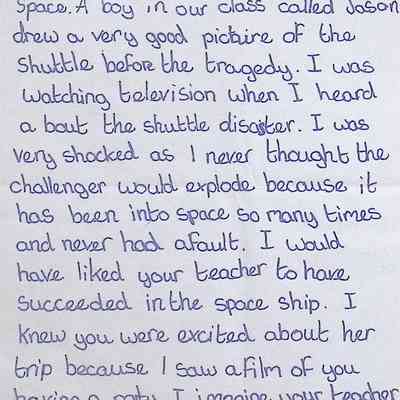 Space. A boy in our class called Jason
drew a very good picture of the
Shuttle before the tragedy. I was
watching television when I heard
a bout the shuttle disaster. I was
very shocked as I never thought the
challenger would explode because it
has been into space so many times
and never had afault. I would
have liked your teacher to have
succeeded in the space ship. I
knew you were excited about her
trip because I saw a film of you
having a party. I imagine your teacher